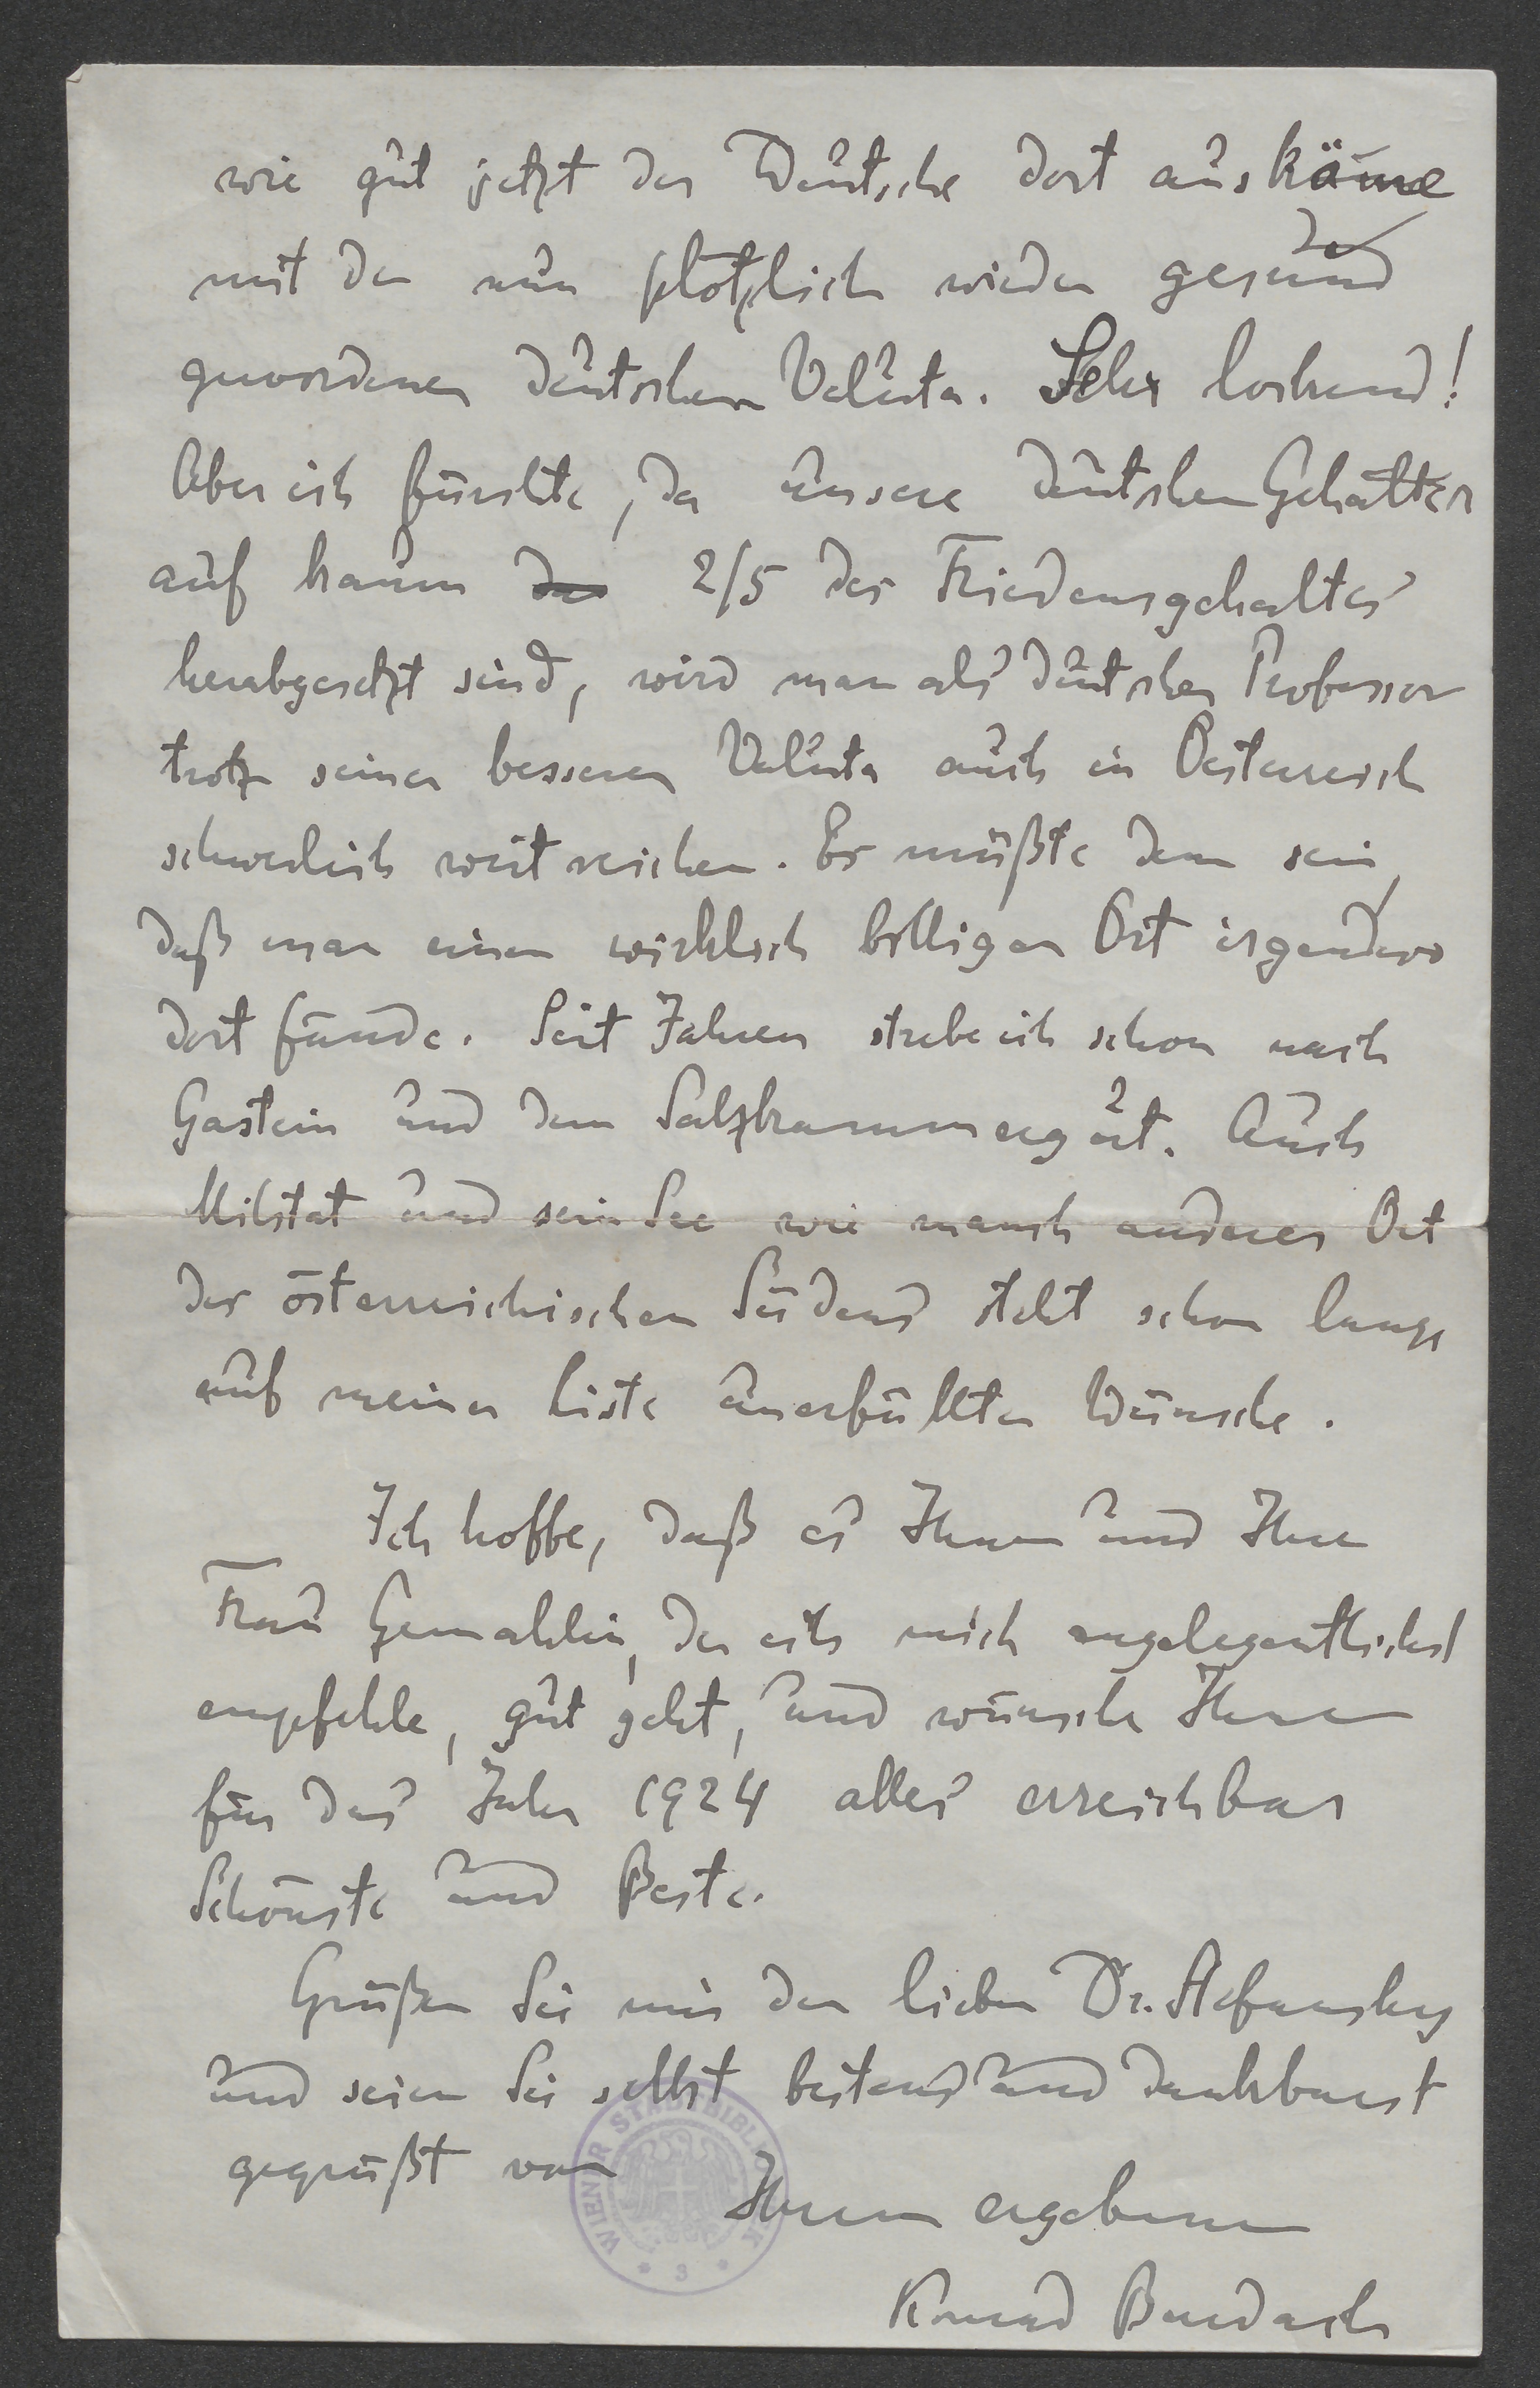 wie gut jetzt der Deutsche dort auskäme
mit der nun plötzlich wieder gesund
gewordenen deutschen Valuta. Sehr lockend!
Aber ich fürchte, da unsere deutschen Gehälter
auf kaum der 2/5 des Friedensgehaltes
herabgesetzt sind, wird man als deutscher Professor
trotz seiner besseren Valuta auch in Oesterreich
schwerlich weit reichen. Es müßte denn sein,
daß man einen wirklich billigen Ort irgendwo
dort fände. Seit Jahren strebe ich schon nach
Gastein und dem Salzkammergut. Auch
Milstat und sein See wie manch anderer Ort
des österreichischen Südens steht schon lange
auf meiner Liste unerfüllter Wünsche.
Ich hoffe, daß es Ihnen und Ihrer
Frau Gemahlin, der ich mich angelegentlichst
empfehle, gut geht, und wünsche Ihnen
für das Jahr 1924 alles erreichbar
Schönste und Beste.
Grüßen Sie mir den lieben Dr. Stefansky
und seien Sie selbst bestens und dankbarst
gegrüßt von
Ihrem ergebenen
Konrad Burdach
WIENER STADTBIBLIOTHEK
* 3 *